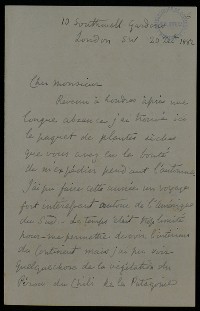 10 Southwell Gardens
London SW 20 Oct 1882
Cher Monsieur
Revenu à Londres après une
longue absence j'ai trouvé ici
le paquet de plantes sèches
que vous avez eu la bonté
de m'expédier pendant l'automne.
J'ai pu faire cette année un voyage
fort intéressant autour de l'Amérique
du Sud. Le temps était trop limité
pour me permettre de voir l'intérieur
du Continent mais j'ai pu voir
quelque chose de la végétation du
Pérou du Chili de la Patagonie